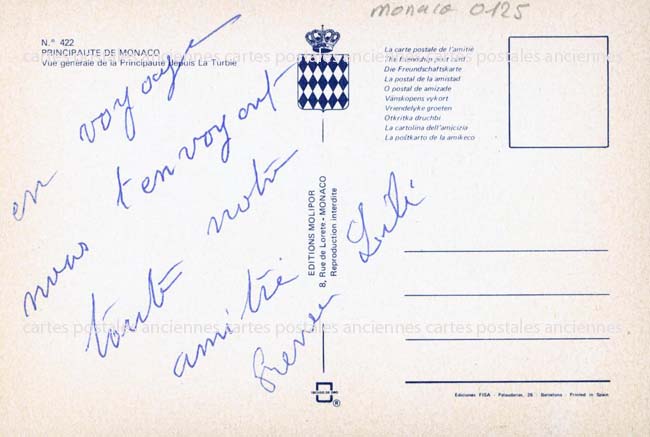 monaco 0125
N.º 422
PRINCIPAUTE DE MONACO
Vue générale de la Principauté depuis La Turbie
en voyage
nous t'envoyont
toute notre
amitié
Lili
EDITIONS MOLIPOR
8, Rue de Lorete - MONACO
Reproduction interdite
La carte postale de l'amitié
The friendship post card
Die Freundschaftskarte
La postal de la amistad
O postal de amizade
Vänskopens vykort
Vriendelyke groeten
Otkritka druchbi
La cartolina dell'amicizia
La poŝtkarto de la amikeco
Ediciones FISA - Palaudarias, 26 - Barcelona - Printed in Spain
®
cartes postales anciennes cartes postales anciennes cartes postales anciennes
cartes postales anciennes cartes postales anciennes cartes postales anciennes